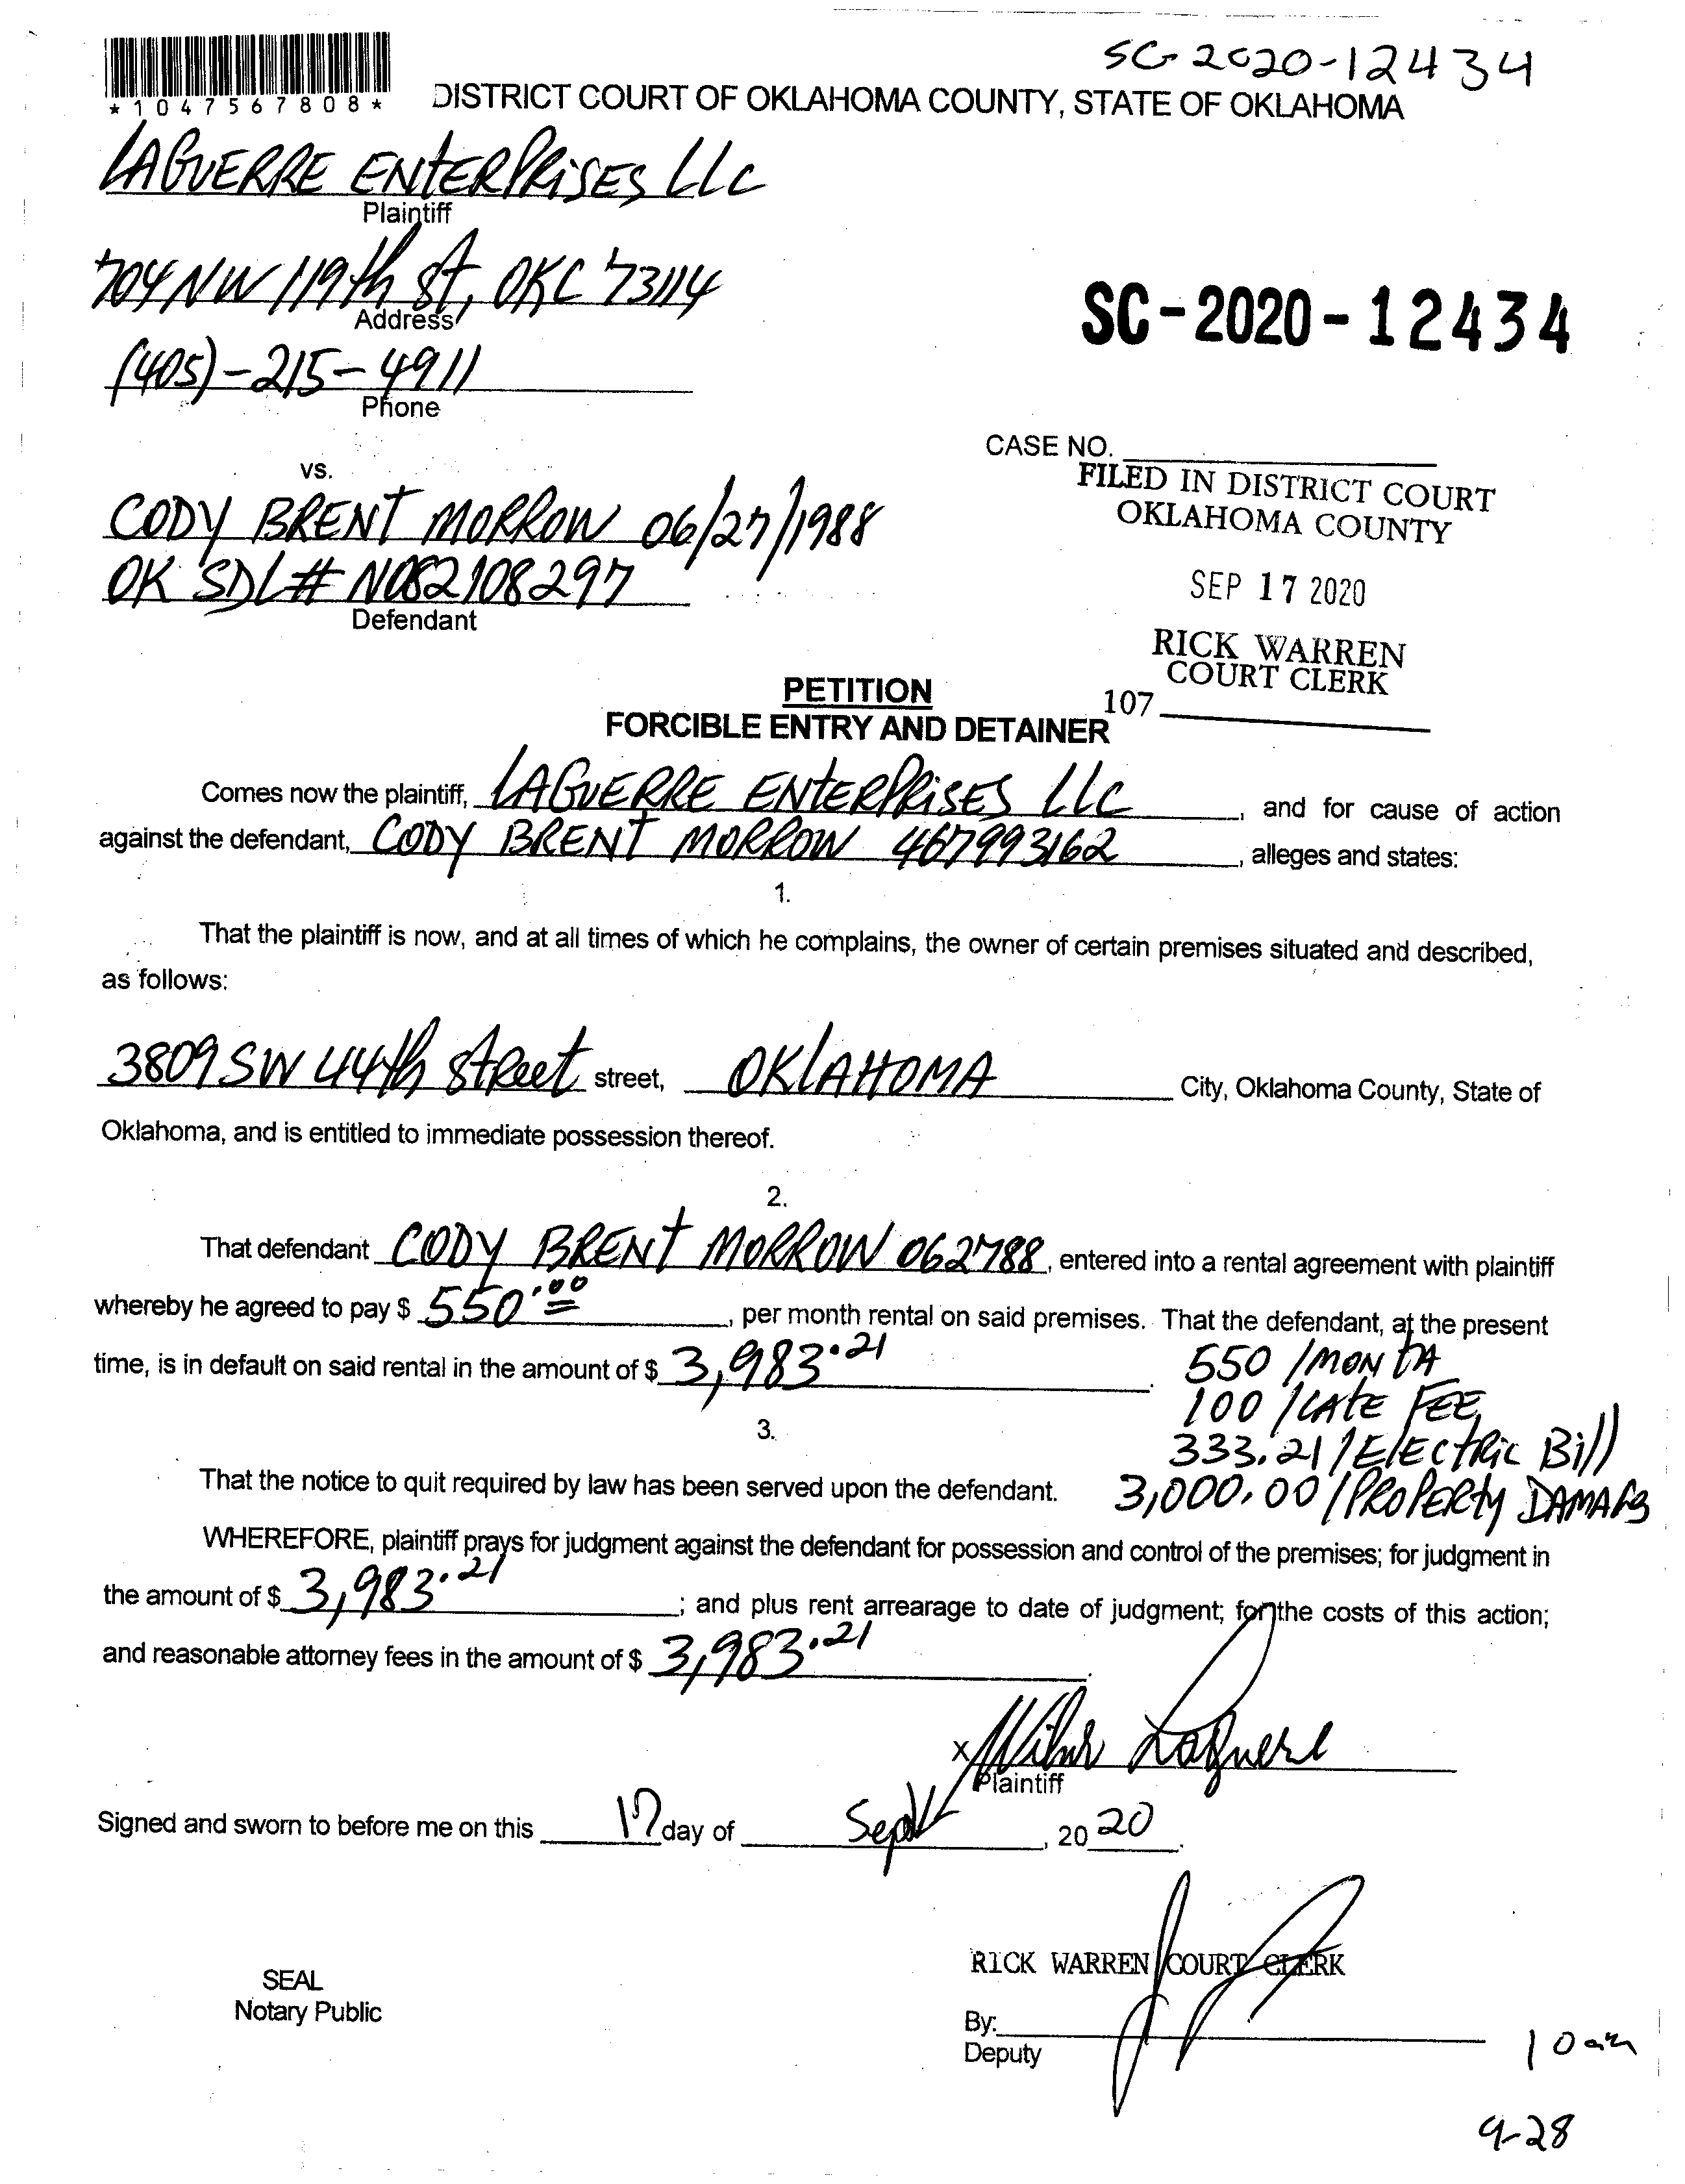 SC-2020-12434
*1047567808*
DISTRICT COURT OF OKLAHOMA COUNTY, STATE OF OKLAHOMA
LAGUERRE ENTERPRISES LLC
Plaintiff
704 NW 119th st, OKC 73114
Address
SC-2020-12434
(405)-215-4911
Phone
CASE NO.
vs.
FILED IN DISTRICT COURT
OKLAHOMA COUNTY
CODY BRENT MORROW 06/27/1988
OK SDL# N082108297
Defendant
SEP 17 2020
RICK WARREN
COURT CLERK
107
PETITION
FORCIBLE ENTRY AND DETAINER
Comes now the plaintiff, LAGUERRE ENTERPRISES LLC, and for cause of action
against the defendant, CODY BRENT MORROW 467993162, alleges and states:
1.
That the plaintiff is now, and at all times of which he complains, the owner of certain premises situated and described,
as follows:
3809 SW 44th street street, OKLAHOMA City, Oklahoma County, State of
Oklahoma, and is entitled to immediate possession thereof.
2.
That defendant CODY BRENT MORROW 062788, entered into a rental agreement with plaintiff
whereby he agreed to pay $ 550.00, per month rental on said premises. That the defendant, at the present
time, is in default on said rental in the amount of $ 3,983.21.
550 / MONTH
100 / LATE FEE
333.21 / ELECTRIC Bill
3,000.00 / PROPERTY
3.
That the notice to quit required by law has been served upon the defendant.
WHEREFORE, plaintiff prays for judgment against the defendant for possession and control of the premises; for judgment in
the amount of $ 3,983.21; and plus rent arrearage to date of judgment; for the costs of this action;
and reasonable attorney fees in the amount of $ 3,983.21.
X
Plaintiff
Signed and sworn to before me on this 17 day of Sept, 20 20.
RICK WARREN COURT CLERK
SEAL
Notary Public
By:
Deputy
10 am
9-28